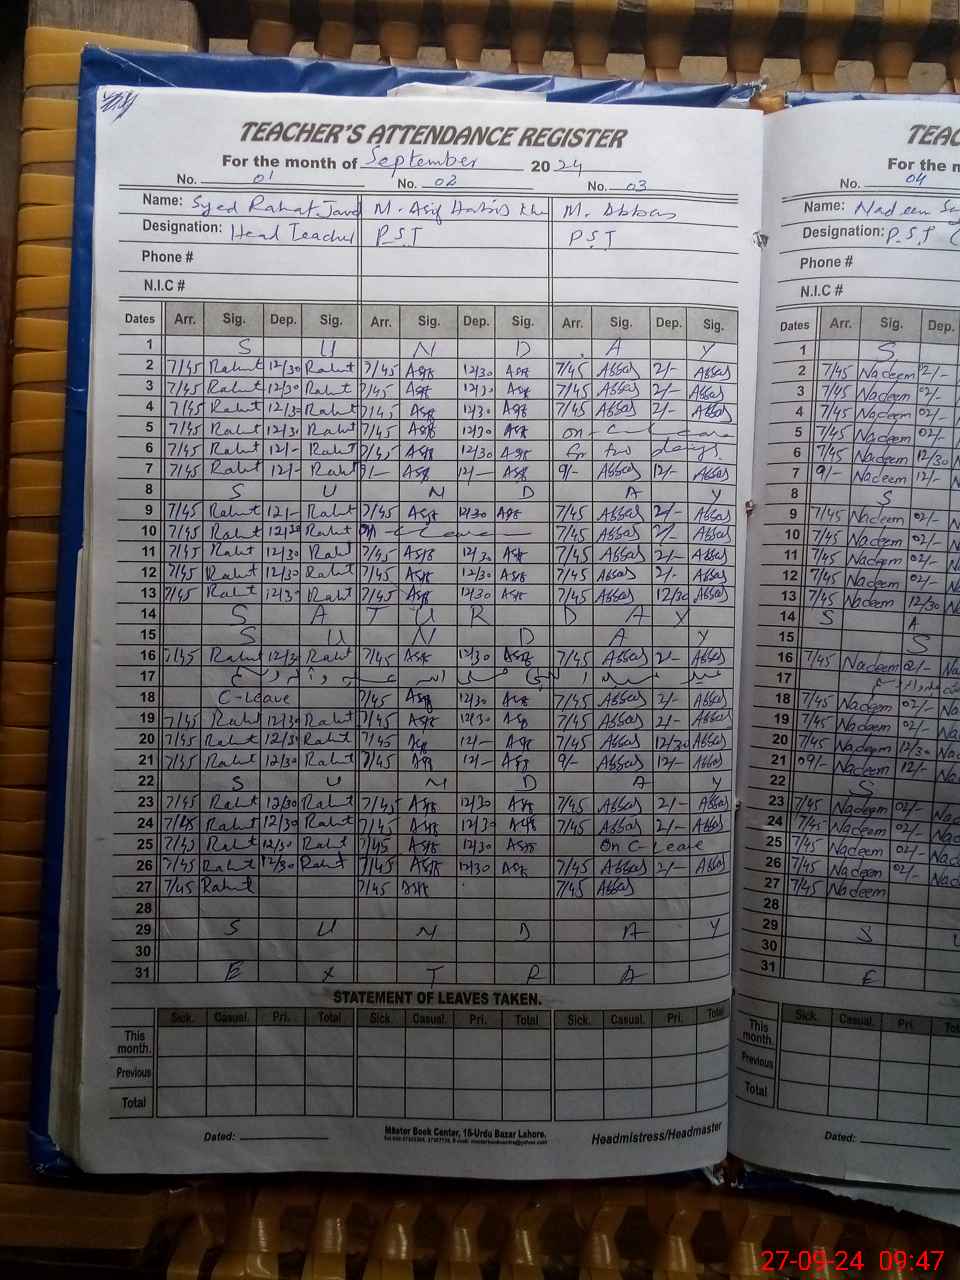 TEACHER'S ATTENDANCE REGISTER
For the month of September 2024
No. 01 No. 02 No. 03
Name: Syed Rahat M. Asif M. Abbas
Designation: Head Teacher P.S.T P.S.T
Phone #
N.I.C #
Dates Arr. Sig. Dep. Sig. Arr. Sig. Dep. Sig. Arr. Sig. Dep. Sig.
1 S U N D A Y
2 7/45 Rahat 12/30 Rahat 7/45 Asif 12/30 Asif 7/45 Abbas 2/- Abbas
3 7/45 Rahat 12/30 Rahat 7/45 Asif 12/30 Asif 7/45 Abbas 2/- Abbas
4 7/45 Rahat 12/30 Rahat 7/45 Asif 12/30 Asif 7/45 Abbas 2/- Abbas
5 7/45 Rahat 12/30 Rahat 7/45 Asif 12/30 Asif on C leave
6 7/45 Rahat 12/- Rahat 7/45 Asif 12/30 Asif for two days
7 7/45 Rahat 12/- Rahat 9/- Asif 12/- Asif 9/- Abbas 12/- Abbas
8 S U N D A Y
9 7/45 Rahat 12/- Rahat 7/45 Asif 12/30 Asif 7/45 Abbas 2/- Abbas
10 7/45 Rahat 12/30 Rahat on C leave 7/45 Abbas 2/- Abbas
11 7/45 Rahat 12/30 Rahat 7/45 Asif 12/30 Asif 7/45 Abbas 2/- Abbas
12 7/45 Rahat 12/30 Rahat 7/45 Asif 12/30 Asif 7/45 Abbas 2/- Abbas
13 7/45 Rahat 12/30 Rahat 7/45 Asif 12/30 Asif 7/45 Abbas 12/30 Abbas
14 S A T U R D A Y
15 S U N D A Y
16 7/45 Rahat 12/30 Rahat 7/45 Asif 12/30 Asif 7/45 Abbas 2/- Abbas
17
18 C-Leave 7/45 Asif 12/30 Asif 7/45 Abbas 2/- Abbas
19 7/45 Rahat 12/30 Rahat 7/45 Asif 12/30 Asif 7/45 Abbas 2/- Abbas
20 7/45 Rahat 12/30 Rahat 7/45 Asif 12/- Asif 7/45 Abbas 12/30 Abbas
21 Rahat 12/30 Rahat 7/45 Asif 12/- Asif 9/- Abbas 12/- Abbas
22 S U N D A Y
23 7/45 Rahat 12/30 Rahat 7/45 Asif 12/30 Asif 7/45 Abbas 2/- Abbas
24 7/45 Rahat 12/30 Rahat 7/45 Asif 12/30 Asif 7/45 Abbas 2/- Abbas
25 7/45 Rahat 12/30 Rahat 7/45 Asif 12/30 Asif On C-Leave
26 7/45 Rahat 12/30 Rahat 7/45 Asif 12/30 Asif 7/45 Abbas 2/- Abbas
27 7/45 Rahat 7/45 Asif 7/45 Abbas
28
29 S U N D A Y
30
31 E X T R A
STATEMENT OF LEAVES TAKEN.
Sick. Casual. Pri. Total Sick. Casual. Pri. Total Sick. Casual. Pri. Total
This month.
Previous
Total
Dated:
Master Book Center, 16-Urdu Bazar Lahore.
Headmistress/Headmaster
TEAC
For the m
No. 04
Name: Nadeem
Designation: P.S.T
Phone #
N.I.C #
Dates Arr. Sig. Dep.
1 S
2 7/45 Nadeem 2/-
3 7/45 Nadeem 02/-
4 7/45 Nadeem 02/-
5 7/45 Nadeem 02/-
6 7/45 Nadeem 12/30
7 9/- Nadeem 12/-
8 S
9 7/45 Nadeem 02/-
10 7/45 Nadeem 02/-
11 7/45 Nadeem 02/-
12 7/45 Nadeem 02/-
13 7/45 Nadeem 12/30
14 S A
15 S
16 7/45 Nadeem 02/-
17
18 7/45 Nadeem 02/-
19 7/45 Nadeem 02/-
20 7/45 Nadeem 12/30
21 09/- Nadeem 12/-
22 S
23 7/45 Nadeem 02/-
24 7/45 Nadeem 02/-
25 7/45 Nadeem 02/-
26 7/45 Nadeem 02/-
27 7/45 Nadeem
28
29 S
30
31 E
Sick. Casual. Pri.
This month.
Previous
Total
Dated:
27-09-24 09:47